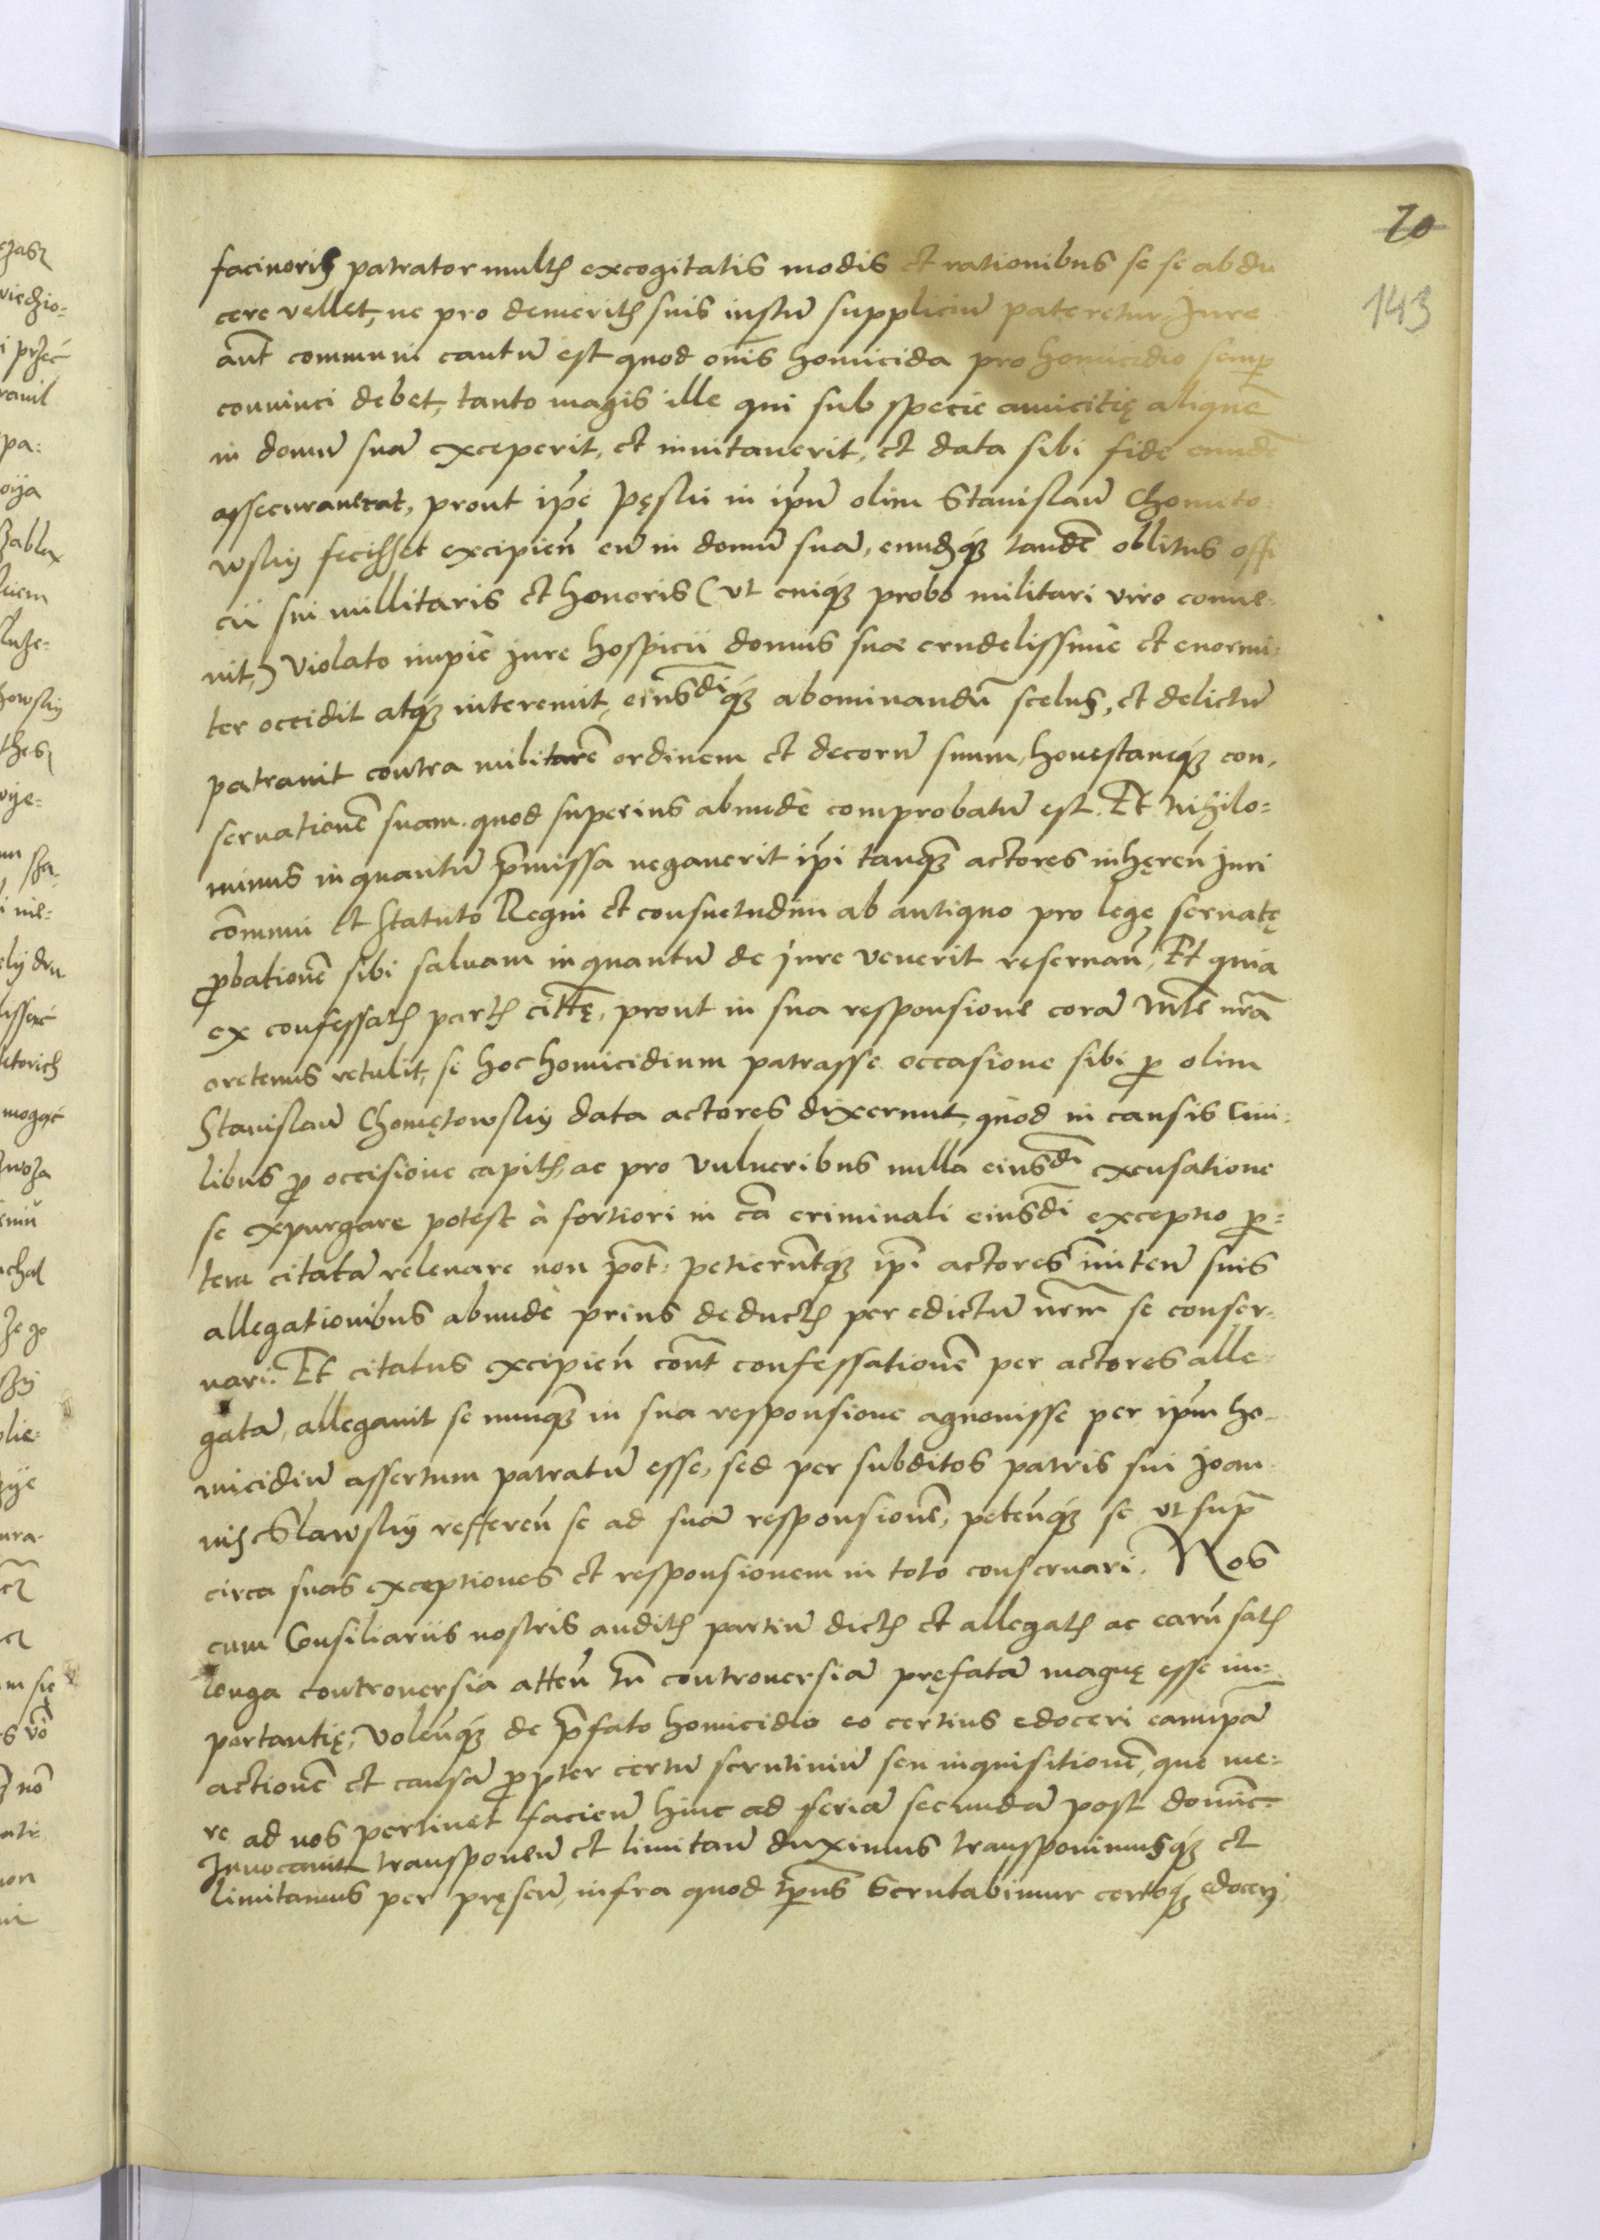 20
143
facinoris patrator multis excogitatis modis et rationibus se se abdu
cere vellet, ne pro demeritis suis iustũ suppliciũ pateretur, Jure
aũt communi cautũ est quod oĩs homicida pro homicidio semp
conuinci debet, tanto magis ille qui sub specie amicitię aliquẽ
in domũ suã exceperit, et inuitauerit, et data sibi fide eundẽ
assecurauerat, prout ipse Pęslii in ipm̃ olim Stanislaũ Chomęto
wskij fecisset excipieñ eũ in domũ suã, eundq́ꝫ tandẽ oblitus offi
cii sui millitaris et honoris (ut cuiq́ꝫ probo militari viro conue-
nit,) violato impiè jure hospicii domus suæ crudelissimè et enormi-
ter occidit atq́ꝫ interemit, eiusdiq́ꝫ abominandũ scelus, et delictũ
patrauit contra militarẽ ordinem et decorũ suum, honestamq́ꝫ con-
seruationẽ suam quod superius abundè comprobatũ est. Et Nihilo=
minus in quantũ p̃missa negauerit ipi tanqꝫ actores inhęreñ juri
com̃uni et statuto Regni et consuetudini ab antiquo pro lege seruatę
ꝓbationẽ sibi saluam in quantũ de jure venerit reseruañ, Et quia
ex confessatis partis cittę, prout in sua responsione corã Mte nr̃a
oretenus retulit, se hoc homicidium patrasse occasione sibi ꝑ olim
Stanislaũ Chomętowskij data actores dixerunt, quod in causis Ciui-
libus ꝓ occisione capitis, ac pro vulneribus nulla eiusdi excusatione
se expurgare potest à fortiori in cã criminali eiusdi exceptio par-
tem citatã releuare non pot̃: petierũtq́ꝫ ipi actores initeñ suis
allegationibus abundè prius deductis per edictũ nr̃m se conser-
uari. Et citatus excipieñ cont̃ confessationẽ per actores alle-
gatã, allegauit se nunqꝫ in sua responsione agnouisse per ipm̃ ho-
micidiũ assertum patratũ esse, sed per subditos patris sui Joan-
nis Slawskij refferen̂ se ad suã responsionẽ, peteñq́ꝫ se ut sup̃
circa suas exceptiones et responsionem in toto conseruari. Nos
cum Consiliariis nostris auditis partiũ dictis et allegatis ac earũ satis
longa controuersia atteñ tñ controuersiã pręfatã magnę esse im-
portantię, Voleñq́ꝫ de p̃fato homicidio eo certius edoceri eamp̃ã
actionẽ et causã ꝓpter certũ scrutiniũ seu inquisitionẽ, que me-
re ad nos pertinet facieñ hinc ad feriã secundã post dominic-
Inuocauit transponeñ et limitañ duximus transponimusq́ꝫ et
limitamus per pręseñ, infra quod tp̃us Scrutabimur certoq́ꝫ edocerj